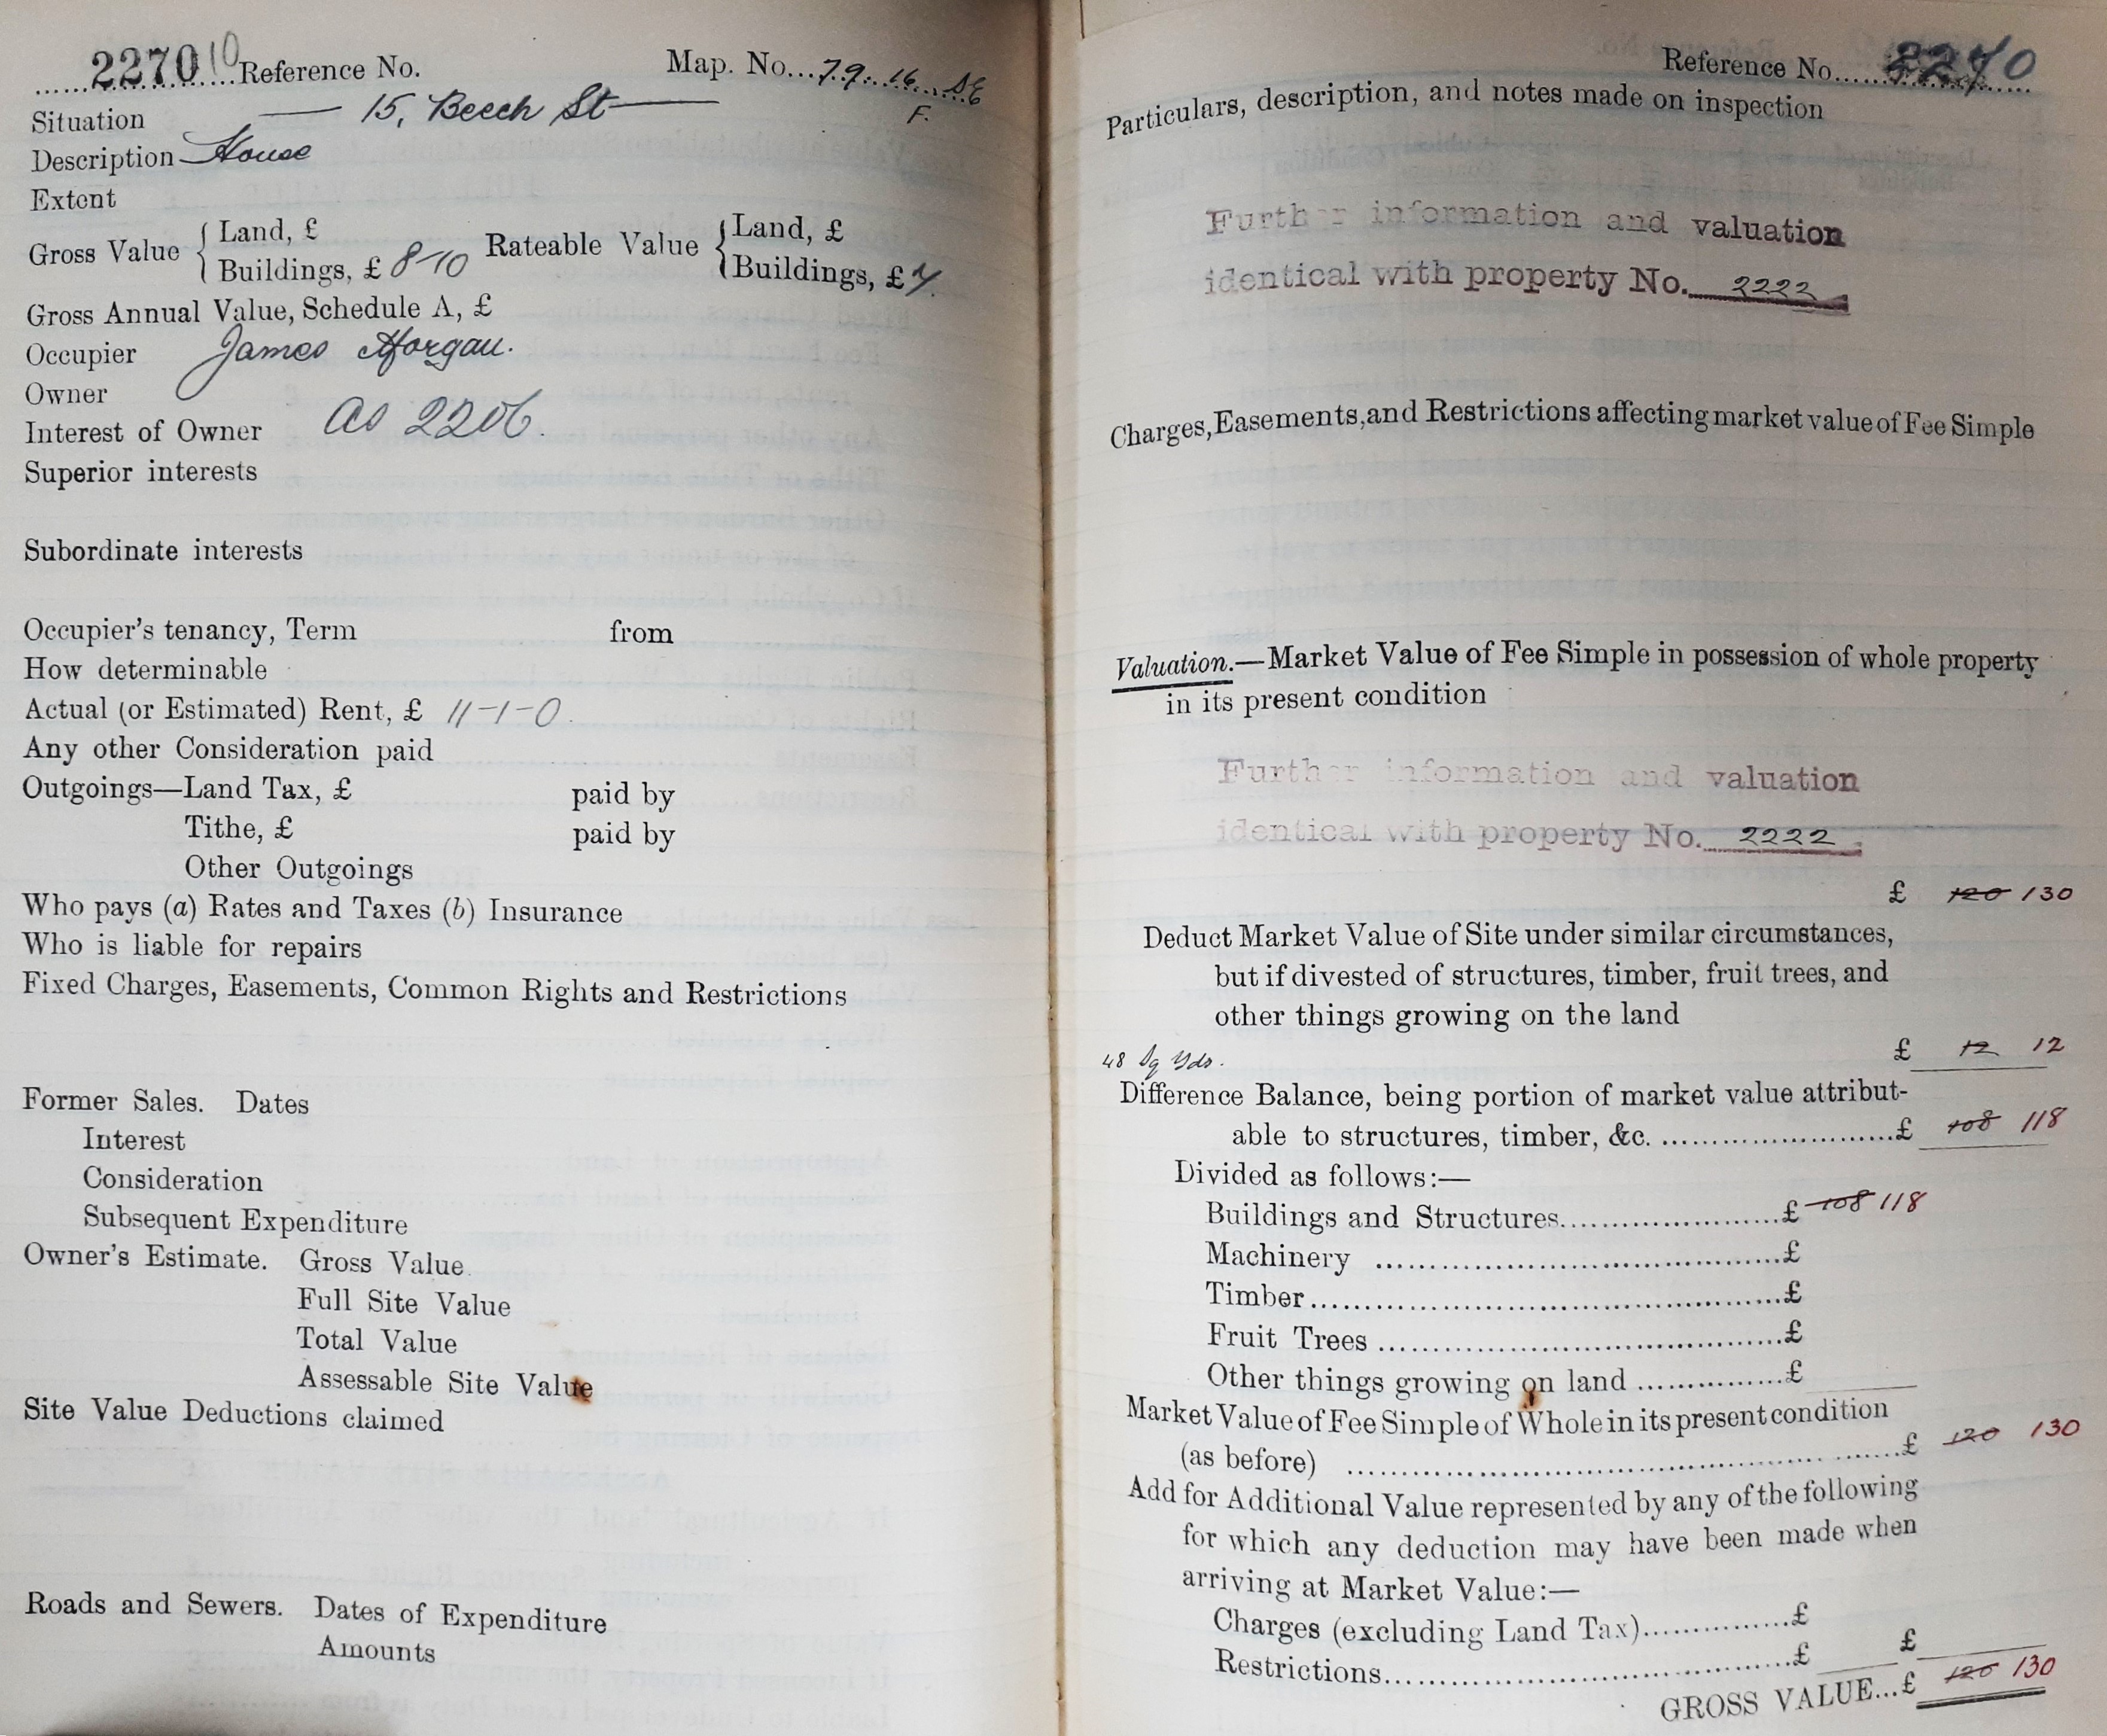 2270 10 Reference No. Map. No. 79.16. SE
F.
Situation — 15, Beech St —
Description House
Extent
Gross Value { Land, £ Rateable Value { Land, £
Buildings, £ 8-10 Buildings, £ 7.
Gross Annual Value, Schedule A, £
Occupier James Morgan.
Owner
Interest of Owner as 2206.
Superior interests
Subordinate interests
Occupier's tenancy, Term from
How determinable
Actual (or Estimated) Rent, £ 11-1-0.
Any other Consideration paid
Outgoings—Land Tax, £ paid by
Tithe, £ paid by
Other Outgoings
Who pays (a) Rates and Taxes (b) Insurance
Who is liable for repairs
Fixed Charges, Easements, Common Rights and Restrictions
Former Sales. Dates
Interest
Consideration
Subsequent Expenditure
Owner's Estimate. Gross Value
Full Site Value
Total Value
Assessable Site Value
Site Value Deductions claimed
Roads and Sewers. Dates of Expenditure
Amounts
Reference No. 2270
Particulars, description, and notes made on inspection
Further information and valuation
identical with property No. 2222
Charges, Easements, and Restrictions affecting market value of Fee Simple
Valuation.—Market Value of Fee Simple in possession of whole property
in its present condition
Further information and valuation
identical with property No. 2222.
£ 120 130
Deduct Market Value of Site under similar circumstances,
but if divested of structures, timber, fruit trees, and
other things growing on the land
48 Sq Yds. £ 12 12
Difference Balance, being portion of market value attribut-
able to structures, timber, &c. ..............................£ 108 118
Divided as follows:—
Buildings and Structures..............................£ 108 118
Machinery ..............................£
Timber..............................£
Fruit Trees ..............................£
Other things growing on land ..............£
Market Value of Fee Simple of Whole in its present condition
(as before) ..............................£ 120 130
Add for Additional Value represented by any of the following
for which any deduction may have been made when
arriving at Market Value:—
Charges (excluding Land Tax)..............£
Restrictions..............................£ £
GROSS VALUE...£ 120 130